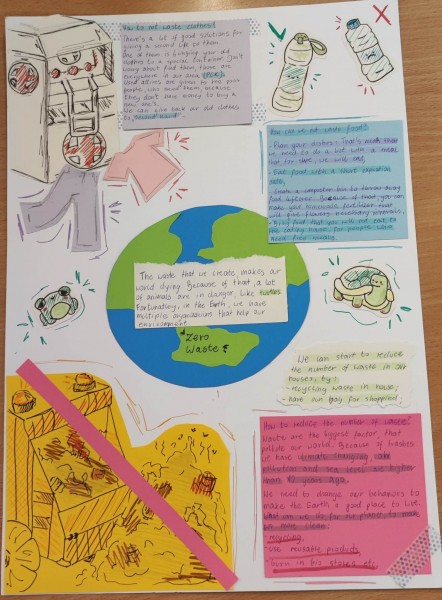 How to not waste clothes?
There's a lot of good solutions for
giving a second life to them.
One of them is bringing your old
clothes to a special container. Don't
worry about find them, there are
everywhere in our area (PCK).
Good attires are given to the poor
people, who need them, because
they don't have money to buy a
new one's.
We can give back our old clothes
to "second hand".
How can we not waste food?
- Plan your dishes. That's mean that
we need to do a list with a meal
that, for date, we will eat,
- Eat food with a short expiration
date,
- Create a composter bin to throw away
food leftover. Because of that you can
make your homemade fertilizer that
will give flowers necessary minerals.
- Bring food that you will not eat to
the eating house, for people who
need food works.
The waste that we create makes our
world dying. Because of that, a lot
of animals are in danger, like turtles.
Fortunatley, in the Earth, we have
multiple organizations that help our
environment.
"Zero
Waste"
We can start to reduce
the number of waste in our
houses, by:
- recycling waste in house,
- have own bag for shopping.
How to reduce the number of waste?
Wastes are the biggest factor, that
pollute our world. Because of wastes
we have climate changing, air
pollution and sea level are higher
than 10 years ago.
We need to change our behaviors to
make the Earth a good place to live.
What can we do, for our planet, to make
it more clean:
- recycling,
- use reusable products